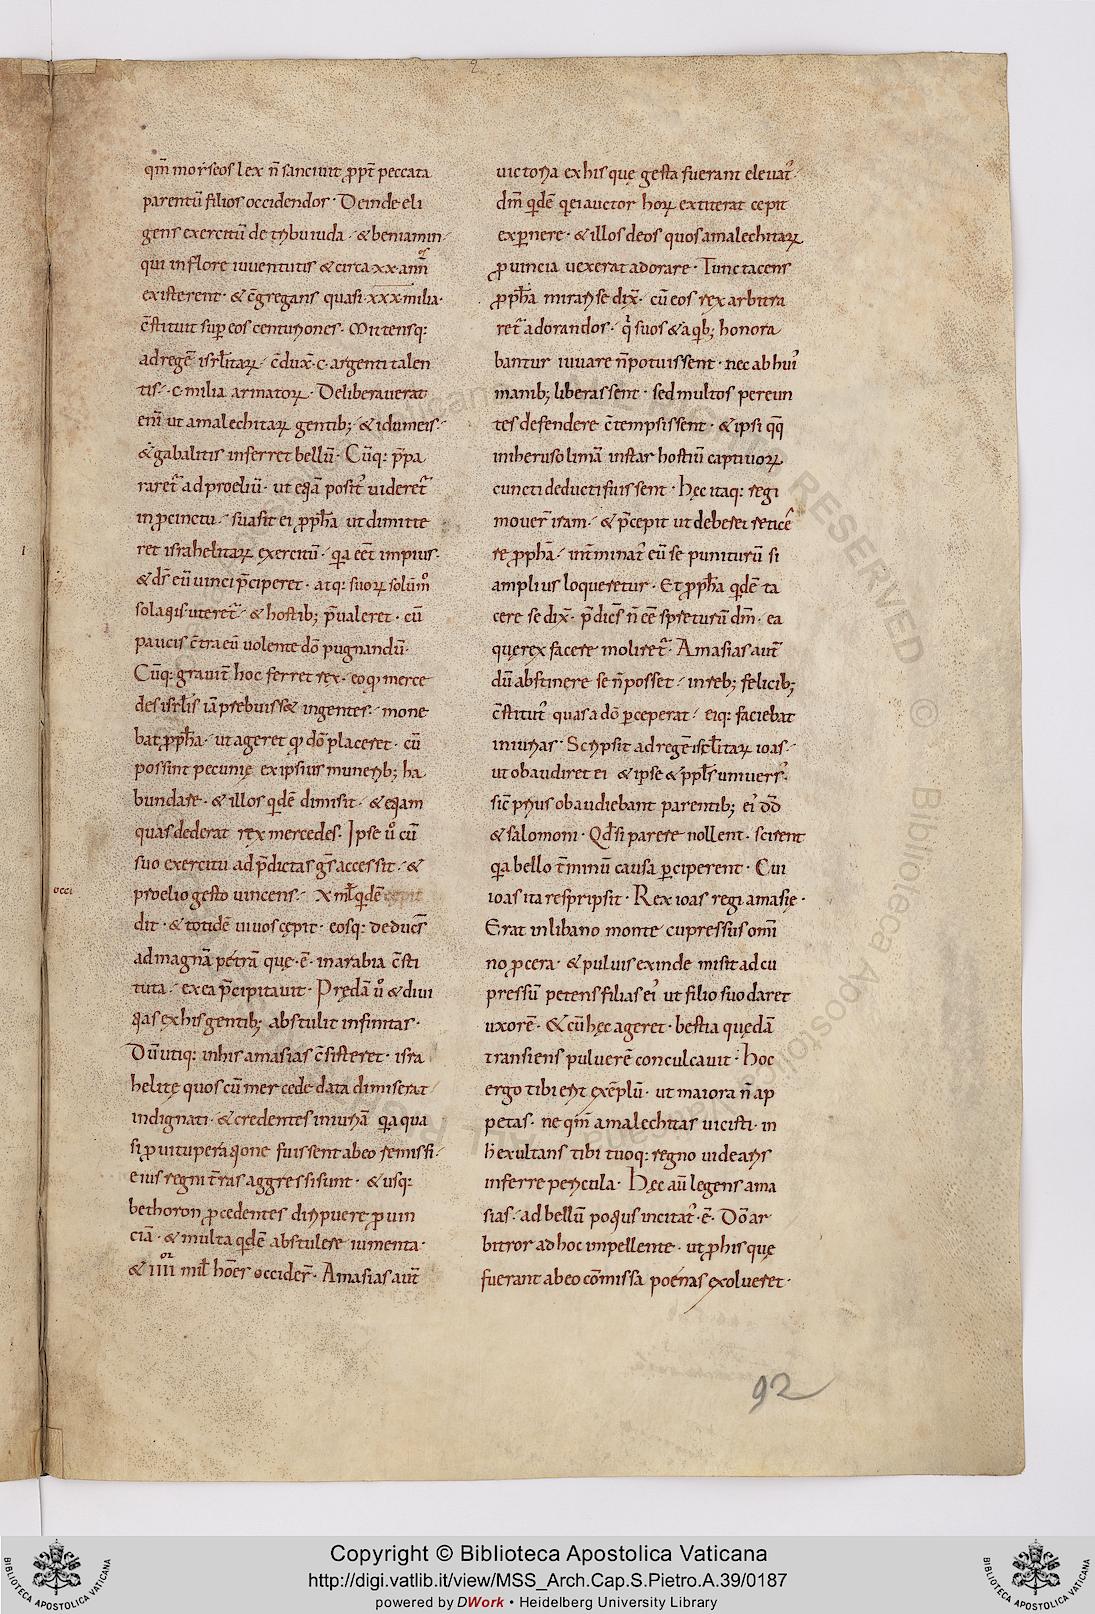 qm̄ moẏseos lex n̄ sanciuit ꝓpt̄ peccata
parentū filios occidendos · Deinde eli
gens exercitū de tribu iuda · & beniamin ·
qui in flore iuuentutis & circa xx · ann̄
existerent · & c̄gregans quasi · xxx · milia ·
c̄stituit sup eos centuriones · Mittensq:
ad regē isrl̄itaꝝ · c̄dux̄ · c · argenti talen
tis · c · milia armatoꝝ · Deliberauerat
enī ut amalechitaꝝ gentib; & idumeis ·
& gabalitis inferret bellū · Cūq: p̄pa
raret᷑ ad proeliū · ut etiā posit᷒ uideret᷑
in ꝓcinctu · suasit ei ꝓph̄a ut dimitte
ret israhelitaꝝ exercitū · qa eēt impius ·
& ds̄ eū uinci p̄ciperet · atq: suoꝝ solūm̊
sola quis uteret᷑ · & hostib; p̄ualeret · cū
paucis c̄tra eū uolente dō pugnandū ·
Cūq: grauit̄ hoc ferret rex · eo qꝫ merce
des isrl̄is iā prebuiss& ingentes · mone
bat ꝓph̄a · ut ageret qꝫ dō placeret · cū
possint pecunię ex ipsius munerib; ha
bundare · & illos qdē dimisit · & etiam
quas dederat rex mercedes · Ipse ů cū
suo exercitu ad p̄dictas gs̄ accessit · &
proelio gesto uincens · X ml̄ qdē cepit
occi
dit · & totidē uiuos cępit · eosq: deducēs
ad magnā petrā quę · ē · in arabia c̄sti
tuta · ex ea p̄cipitauit · Prędā ů & diui
tias ex his gentib; abstulit infinitas ·
Dū utiq: in his amasias c̄sisteret · isra
helitę quos cū mercede data dimiserat
indignati · & credentes iniuriā qa qua
si ꝓ uituperatione fuissent ab eo remissi ·
eius regni t̄ras aggressi sunt · & usq:
bethoron ꝓcedentes diripuere ꝓuin
ciā · & multa qdē abstulere iumenta ·
& IIII mil̄ hoēs occider̄ · Amasias aut̄
uictoria ex his quę gesta fuerant eleuat᷒ ·
dm̄ qdē qei auctor hoꝝ extiterat cepit
expnere · & illos deos quos amalechitaꝝ
ꝓuincia uexerat adorare · Tunc tacens
ꝓph̄a mirari se dix̄ · cū eos rex arbitra
ret᷑ adorandos · q̇ suos & a qb; honora
bantur iuuare n̄ potuissent · nec ab hui᷒
manib; liberassent · sed multos pereun
tes defendere c̄tempsissent · & ipsi qq
in iherusolimā instar hostiū captiuoꝝ
cuncti deducti fuissent · hęc itaq: regi
mouer̄ iram · & p̄cepit ut deberet reticē
re ꝓph̄a · int̄minat᷒ eū se puniturū si
amplius loqueretur · Et ꝓph̄a qdē ta
cere se dix̄ · p̄dicēs n̄ eē spreturū dm̄ · ea
quę rex facere moliret᷑ · Amasias aut̄
dū abstinere se n̄ posset · in reb; felicib;
c̄stitut᷒ quas a dō pceperat · eiq: faciebat
iniurias · Scripsit ad regē isrl̄itaꝝ ioas ·
ut obaudiret ei & ipse & ppl̄s uniuers᷒ ·
sic̄ prius obaudiebant parentib; ei᷒ dd̄
& salomoni · Qd̄ si parere nollent · scirent
qa bello t̄minū causa pciperent · Cui
ioas ita respripsit · Rex ioas regi amasię ·
Erat in libano monte cupressus omī
no ꝓcera · & puluis exinde misit ad cu
pressū petens filias ei᷒ ut filio suo daret
uxorē · & cū hęc ageret · bestia quędā
transiens puluerē conculcauit · hoc
ergo tibi erit exēplū · ut maiora n̄ ap
petas · ne qm̄ amalechitas uicisti · in
h̄ exultans tibi tuoq: regno uidearis
inferre pericula · hęc aū legens ama
sias · ad bellū potius incitat᷒ · ē · Dō ar
bitror ad hoc impellente · ut ꝓ his quę
fuerant ab eo cōmissa poenas exolueret ·
92
Copyright © Biblioteca Apostolica Vaticana
http://digi.vatlib.it/view/MSS_Arch.Cap.S.Pietro.A.39/0187
powered by DWork • Heidelberg University Library
BIBLIOTECA APOSTOLICA VATICANA
BIBLIOTECA APOSTOLICA VATICANA